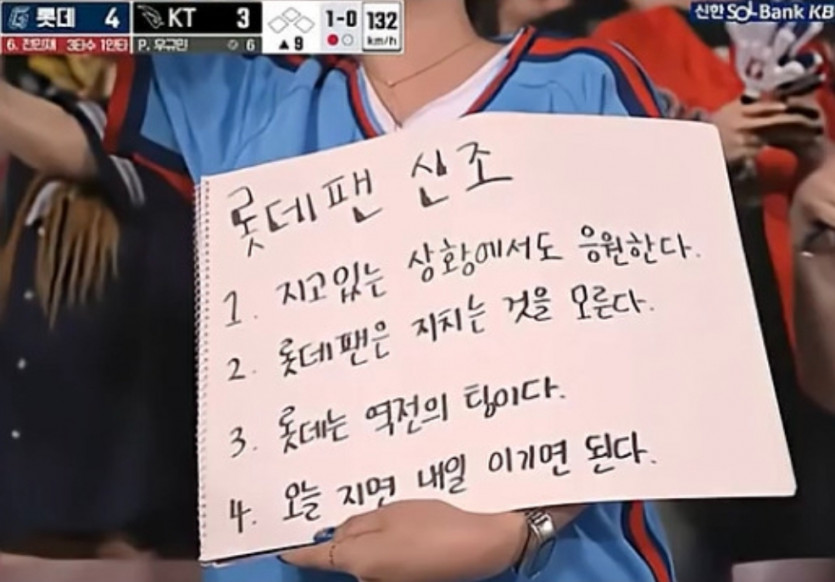 롯데 4 KT 3 1-0 132
km/h
6. 전민재 3타수 1안타 P. 우규민 6 ▲9
신한 SOL Bank KB
롯데팬 신조
1. 지고있는 상황에서도 응원한다.
2. 롯데팬은 지치는 것을 모른다.
3. 롯데는 역전의 팀이다.
4. 오늘 지면 내일 이기면 된다.